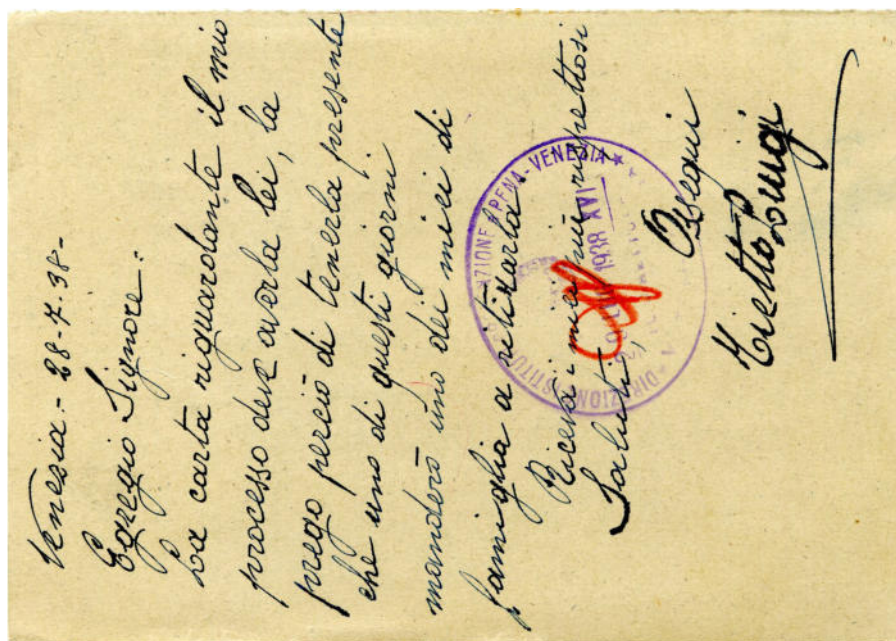 Venezia - 28-7-38-
Egregio Signore -
La carta riguardante il mio
processo deve averla lei, la
prego perciò di tenerla presente
che uno di questi giorni
manderò uno dei miei di
famiglia a ritirarla.
Riceva i miei più rispettosi
Saluti,
Ossequi
Luigi
DIREZIONE ISTITU
AZIONE PENA - VENEZIA
1938 XVI